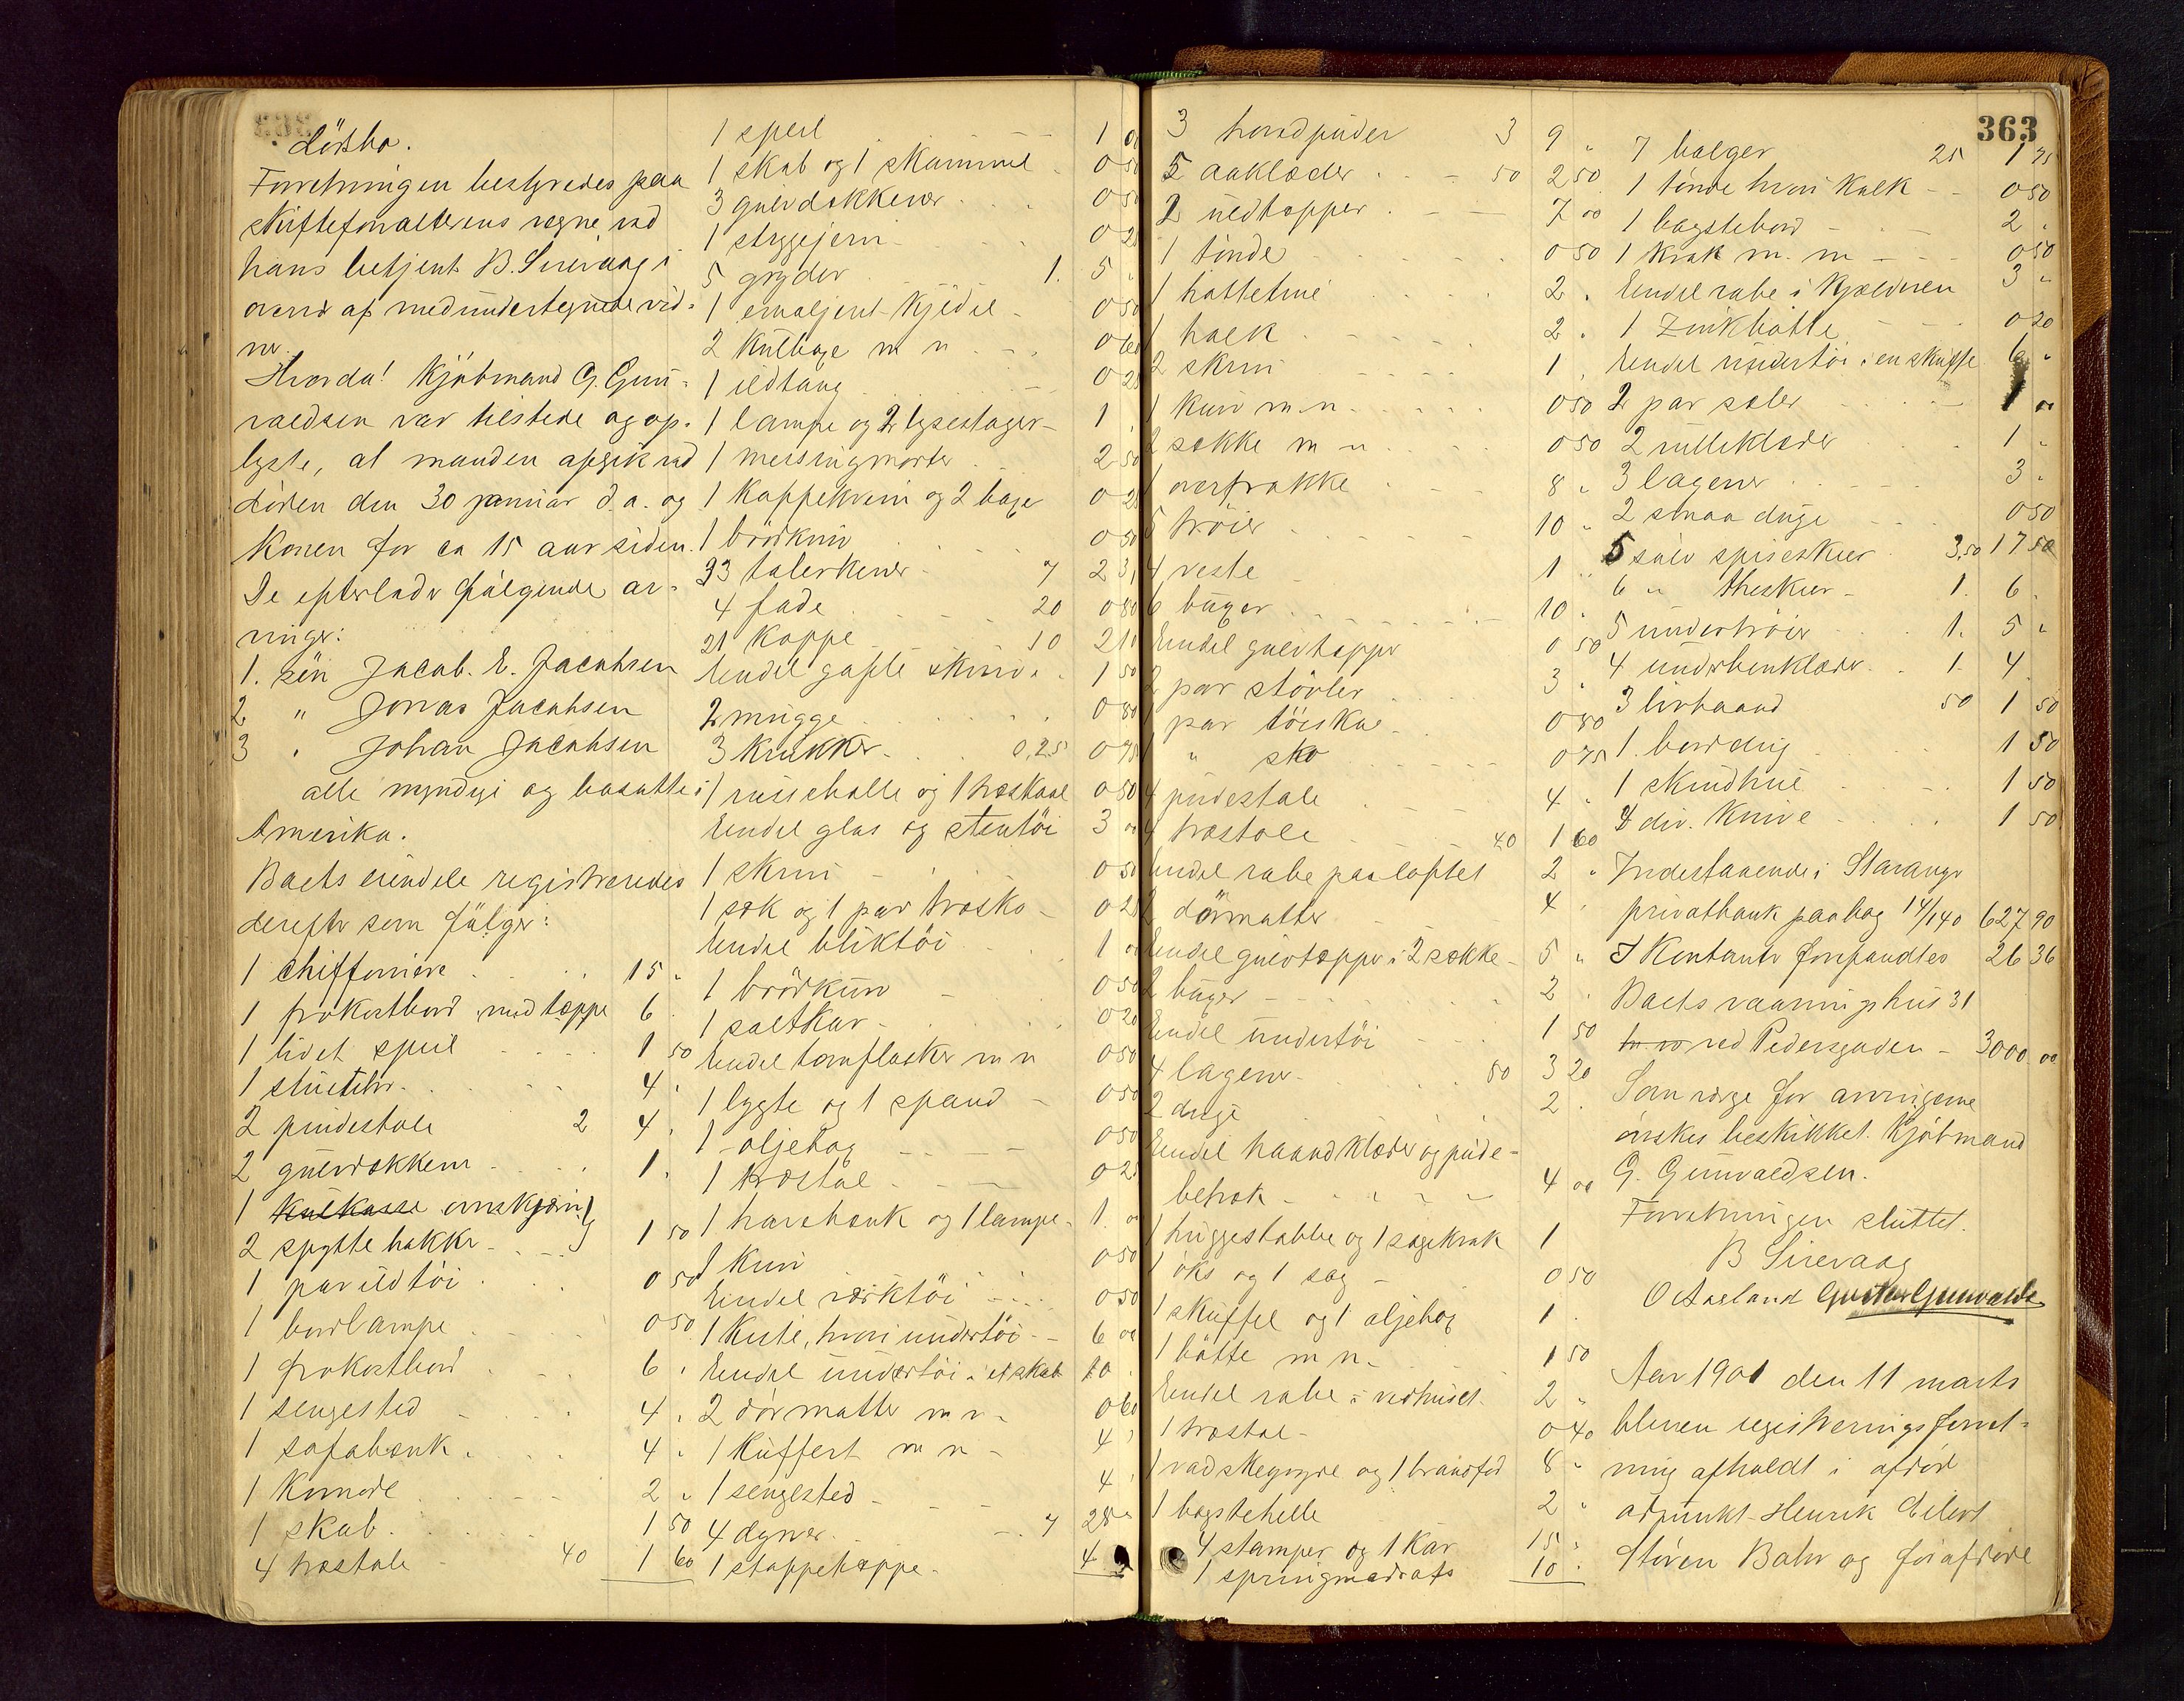 363
Lösöre.
Forretningen bestyredes paa
skifteforvalterens vegne ved
hans betjent B. Sirevaag i
overv af medundertegnede vid-
ner.
Hvorda! Kjöbmand G. Gun-
valdsen var tilstede og op-
lyste, at manden afgik ved
döden den 30 januar d.a. og
Konen for ca 15 aar siden.
De efterlader fölgende ar-
vinger:
1. sön Jacob. E. Jacobsen
2 " Jonas Jacobsen
3 " Johan Jacobsen
alle myndige og bosatte i
Amerika.
Boets eiendele registreredes
derefter som fölger:
1 chiffoniere 15 "
1 frokostbord med tæppe 6
1 lidet speil 1 50
1 stueuhr 4 "
2 pindestole 2 4 "
2 gulvdækkener 1 "
1 kulkasse ovnskjærm }
2 spyttebakker } 1 50
1 par ildtöi 0 50
1 bordlampe 0 50
1 frokostbord 6 "
1 sengested 4 "
1 sofabænk 4 "
1 Komode 2 "
1 skab 1 50
4 træstole 40 1 60
1 speil 1 00
1 skab og 1 skammel 0 50
3 gulvdækkener 0 50
1 strygejern 0 25
5 gryder 1. 5 "
1 emaljert Kjedel 0 50
2 Kulbage m m 0 60
1 ildtang 0 25
1 lampe og 2 lysestager 1
1 messingmorter 2 50
1 Kaffekvern og 2 bage 0 25
1 brödkurv 0 50
33 talerkener 7 2 31
4 fade 20 0 80
21 Koppe 10 2 10
Endel gafle skeer 1 50
2 mugge 0 80
3 Krukker 0,25 0 75
1 muskolle og 1 træskaal 0 50
Endel glas og stentöi 3 00
1 skrin 0 50
1 sæk og 1 par træsko 0 25
Endel bliktöi 1 00
1 brödkurv 0 50
1 saltkar 0 20
Endel tomflasker m m 0 50
1 lygte og 1 spand 0 50
1 oljebag 0 50
1 træstol 0 25
1 havebænk og 1 lampe 1. 00
1 Kurv 0 50
Endel værktöi 0 50
1 Kiste, hvori undertöi 6 00
Endel undertöi i et skab 10
2 dörmatter m m 0 60
1 Kuffert m m 4 "
1 sengested 4 "
4 dyner 7 28 "
1 stoppetæppe 4
3 hovedpuder 3 9 "
5 aaklæder 50 2 50
2 uldtæpper 7 00
1 tönde 0 50
1 hatteture 2 "
1 balk 2 "
2 skrin 1 "
1 Kurv m m 0 50
2 sække m m 0 50
1 overfrakke 8 "
5 tröier 10 "
4 veste 1 "
6 buxer 10 "
Endel gulvtæpper 0 50
2 par stövler 3 "
1 par töisko 0 80
1 " sko 0 75
4 pindestole 4 "
4 træstole 40 1 60
Endel rabe paa loftet 2 "
2 dörmatter 4 "
Endel gulvtæpper i 2 sække 5 "
2 buxer 2 "
Endel undertöi 1 50
4 lagener 80 3 20
2 duge 2 "
Endel haandklæder og pude-
betræk 4 00
1 huggestabbe og 1 sagekrak 1
1 öks og 1 sag 0 50
1 skuffel og 1 oljebag 1
1 bötte m m 1 50
Endel rabe i vedhuset 2 "
1 træstol 0 40
1 vadskegryde og 1 brandfad 8 "
1 bagstehelle 2 "
4 stamper og 1 Kar 15 "
1 springmadrats 10 "
7 balger 25 1 75
1 tönde hvori Kalk 0 50
1 bagstebord 2 "
1 Krak m. m 0 50
Endel rabe i Kjælderen 3 "
1 Zinkbötte 0 20
Endel undertöi i en skuffe 6 "
2 par seler 1 00
2 rulleklæder 1 "
3 lagener 3 "
2 smaa duge 0 50
5 sölv spiseskeer 3,50 17 50
6 " theskeer 1. 6 "
5 undertröier 1. 5 "
4 underbenklæder 1. 4
3 livbaand 50 1 50
1 borddug 1 50
1 skindhue 1 50
4 div. Knive 1 50
Indestaaende i Stavanger
privatbank paa bog 14/140 627 90
I Kontanter forefandtes 26 36
Boets vaaningshus 31
ved Pedersgaden 3000 00
Som værge for arvingerne
önskes beskikket. Kjöbmand
G. Gunvaldsen.
Forretningen sluttet.
B Sirevaag
O Aarland Gustav Gunvalds
Aar 1901 den 11 marts
bleven registreringsforret-
ning afholdt i afdöd
adjunkt Henrik Eilert
Stören Bahr og föravdöde